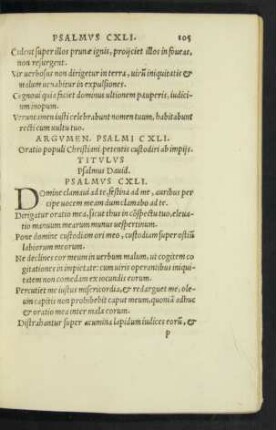 PSALMVS CXLI. 105
Cadent super illos prunæ ignis, proijciet illos in foueas,
non resurgent.
Vir uerbosus non dirigetur in terra, uirũ iniquitatis &
malum uenabitur in expulsiones.
Cognoui quia faciet dominus ultionem pauperis, iudici
um inopum.
Veruntamen iusti celebrabunt nomen tuum, habitabunt
recti cum uultu tuo.
ARGVMEN. PSALMI CXLI.
Oratio populi Christiani petentis custodiri ab impijs.
TITVLVS
Psalmus Dauid.
PSALMVS CXLI.
Domine clamaui ad te, festina ad me, auribus per
cipe uocem meam dum clamabo ad te.
Dirigatur oratio mea, sicut thus in cõspectu tuo, eleua
tio manuum mearum munus uespertinum.
Pone domine custodiam ori meo, custodiam super ostiũ
labiorum meorum.
Ne declines cor meum in uerbum malum, ut cogitem co
gitationes in impietate: cum uiris operantibus iniqui
tatem non comedam ex iocundis eorum.
Percutiet me iustus misericordia, & redarguet me, ole
um capitis non prohibebit caput meum, quoniã adhuc
& oratio mea inter mala eorum.
Distrahantur super acumina lapidum iudices eorũ, &
p